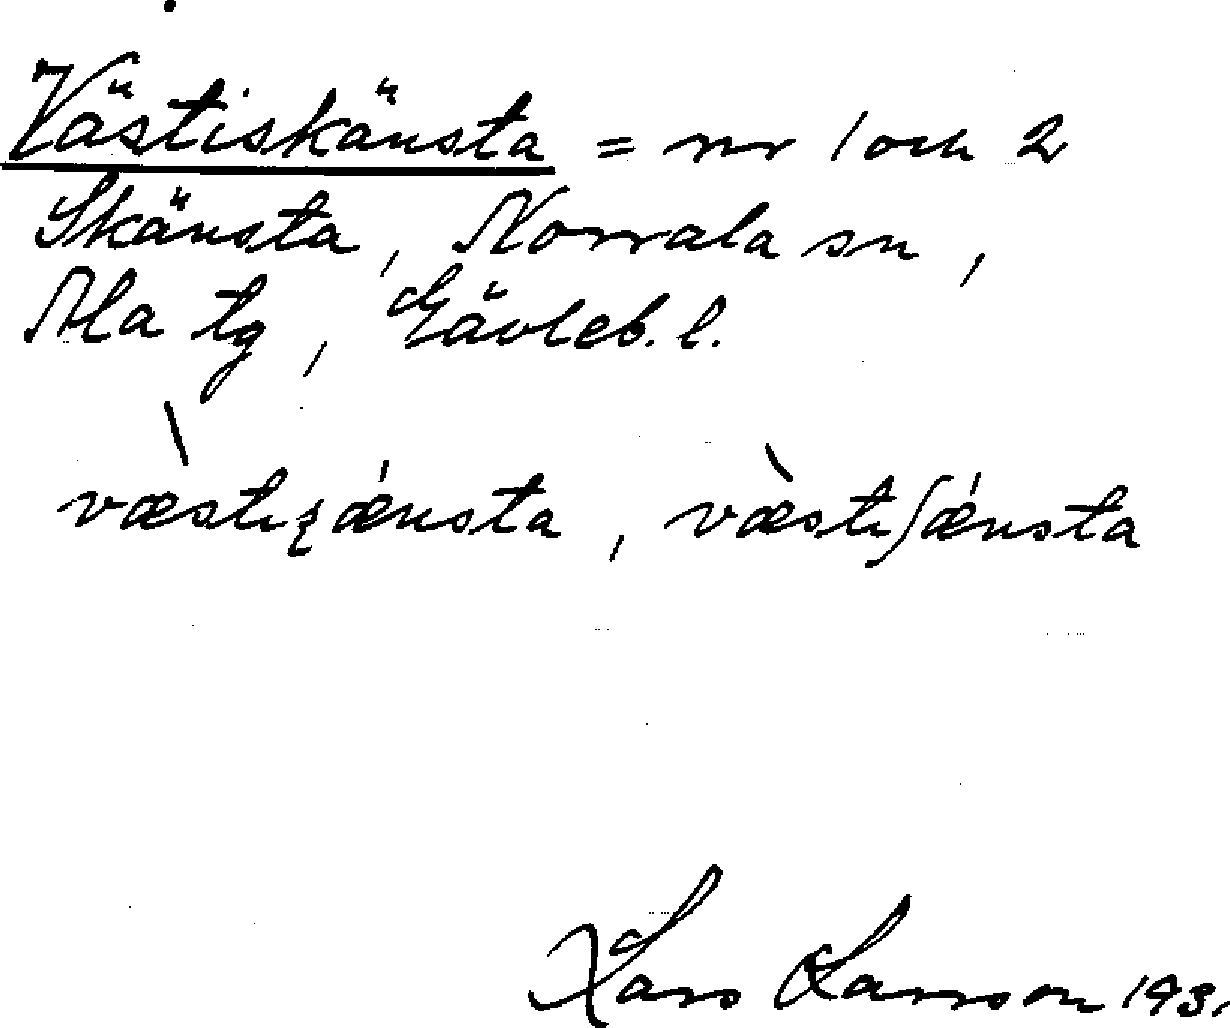 Västiskänsta = nr 1 och 2
Skänsta, Norrala sn,
Ala tg, Gävleb. l.
væstiʂǽnsta, væstiʃǽnsta
Lars Larsson 193